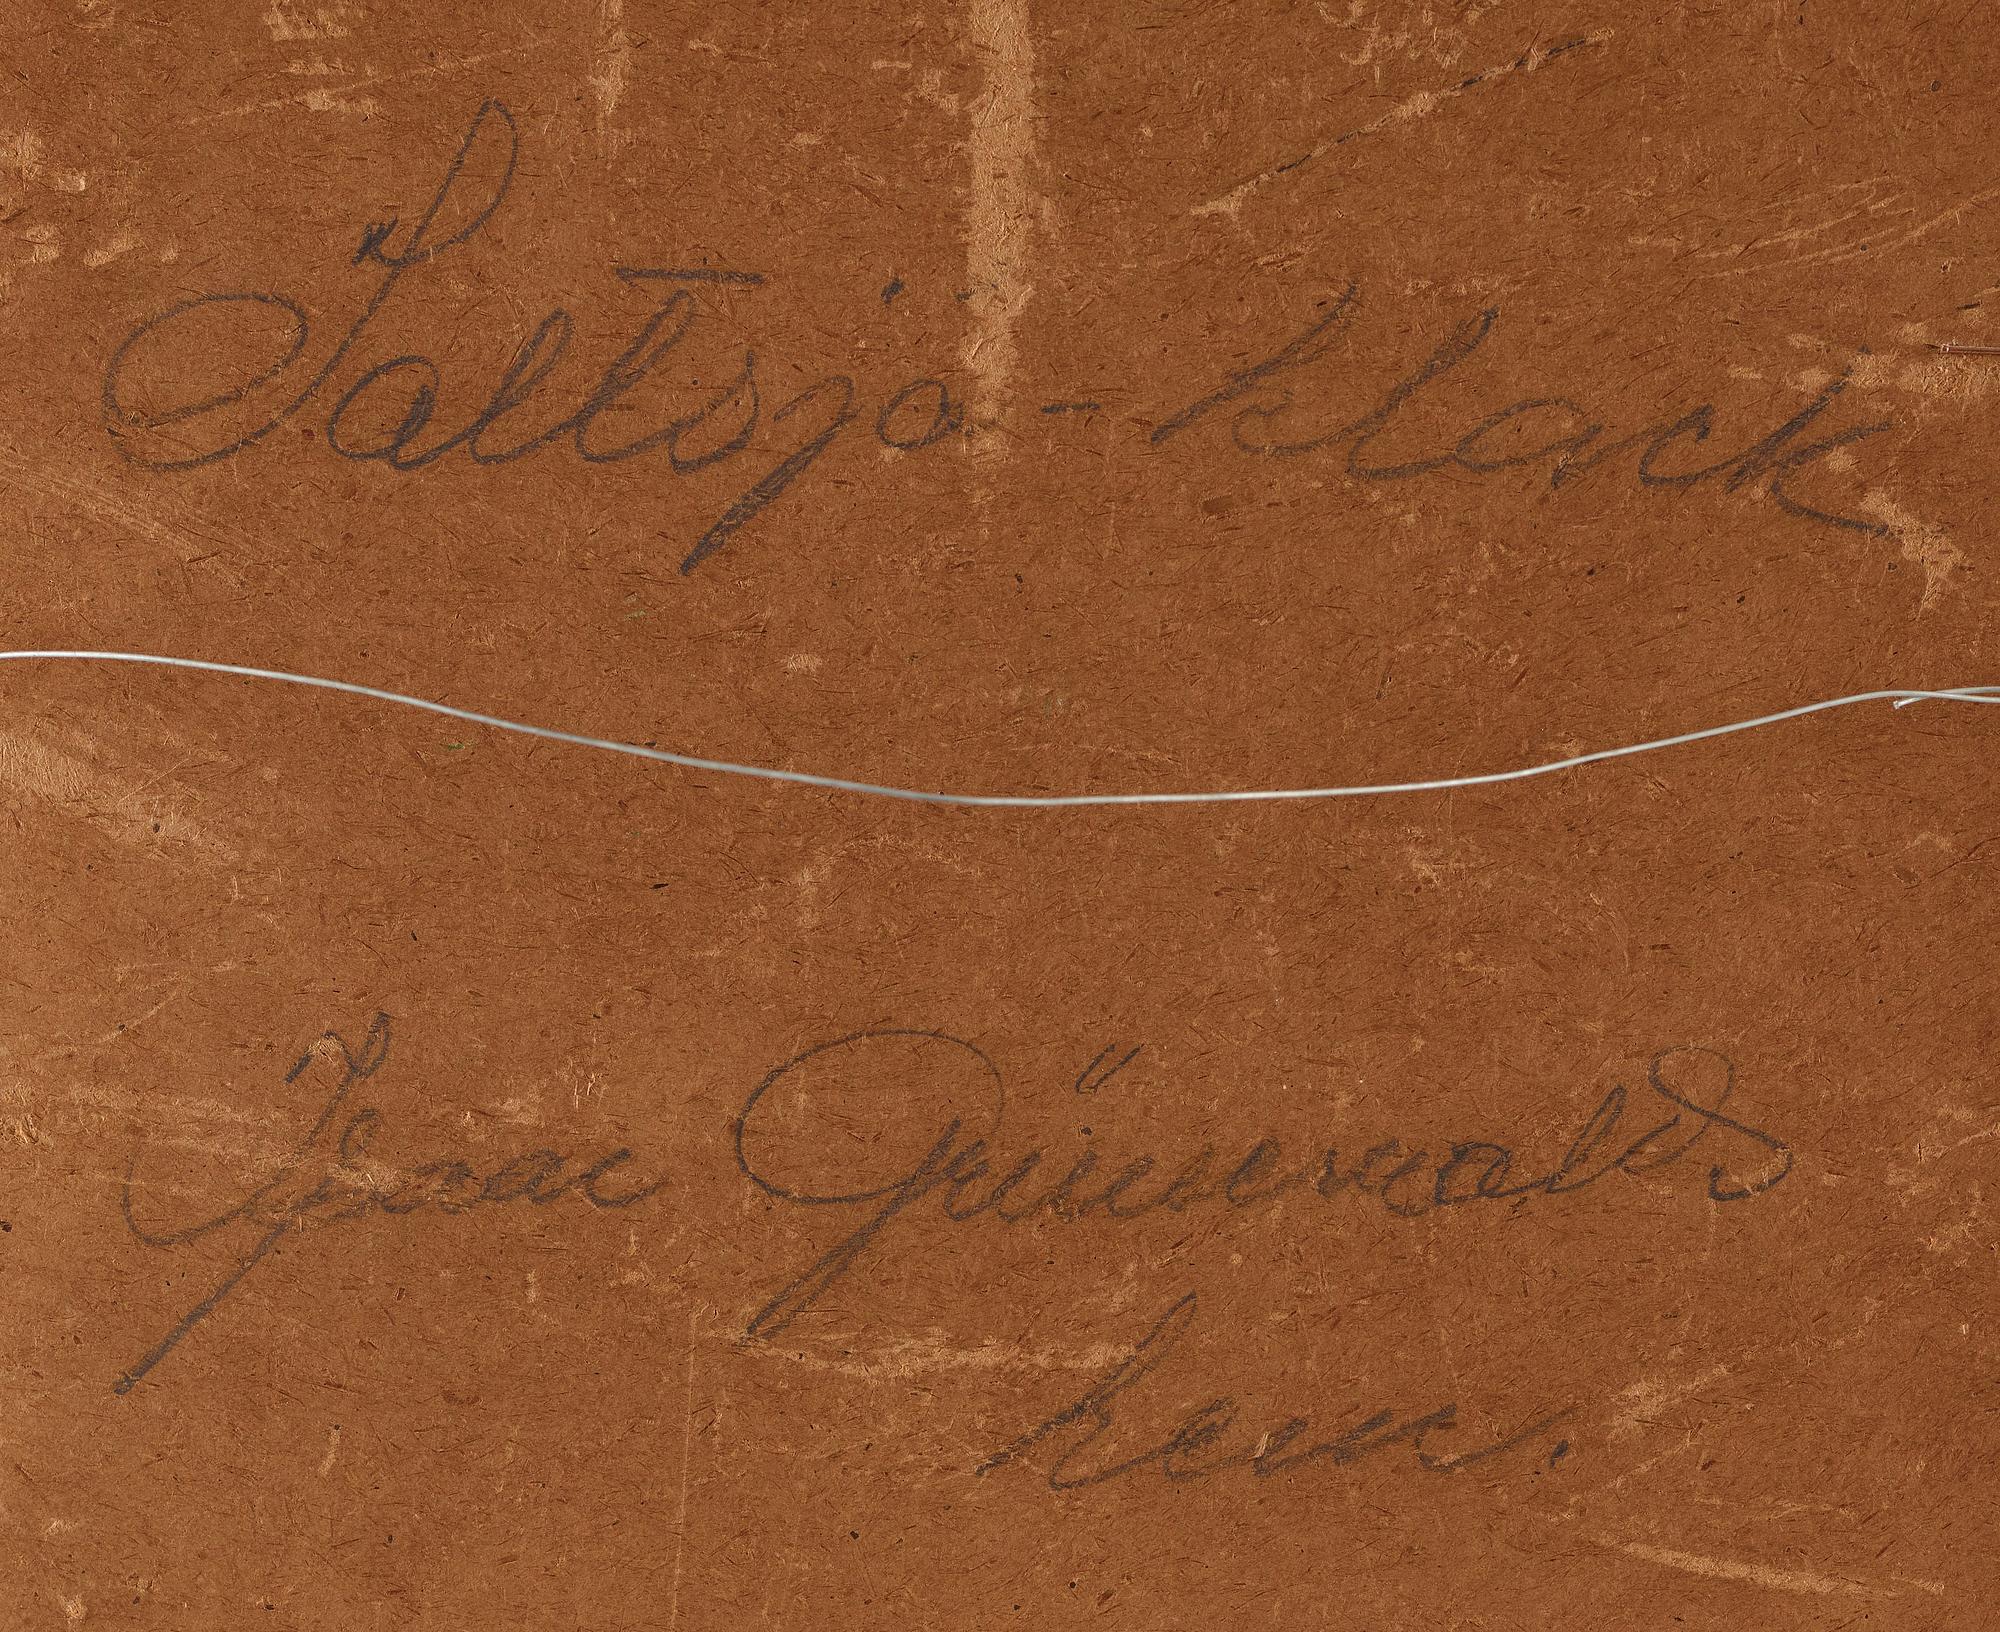 Saltsjö-klack
Isaac Grünewalds